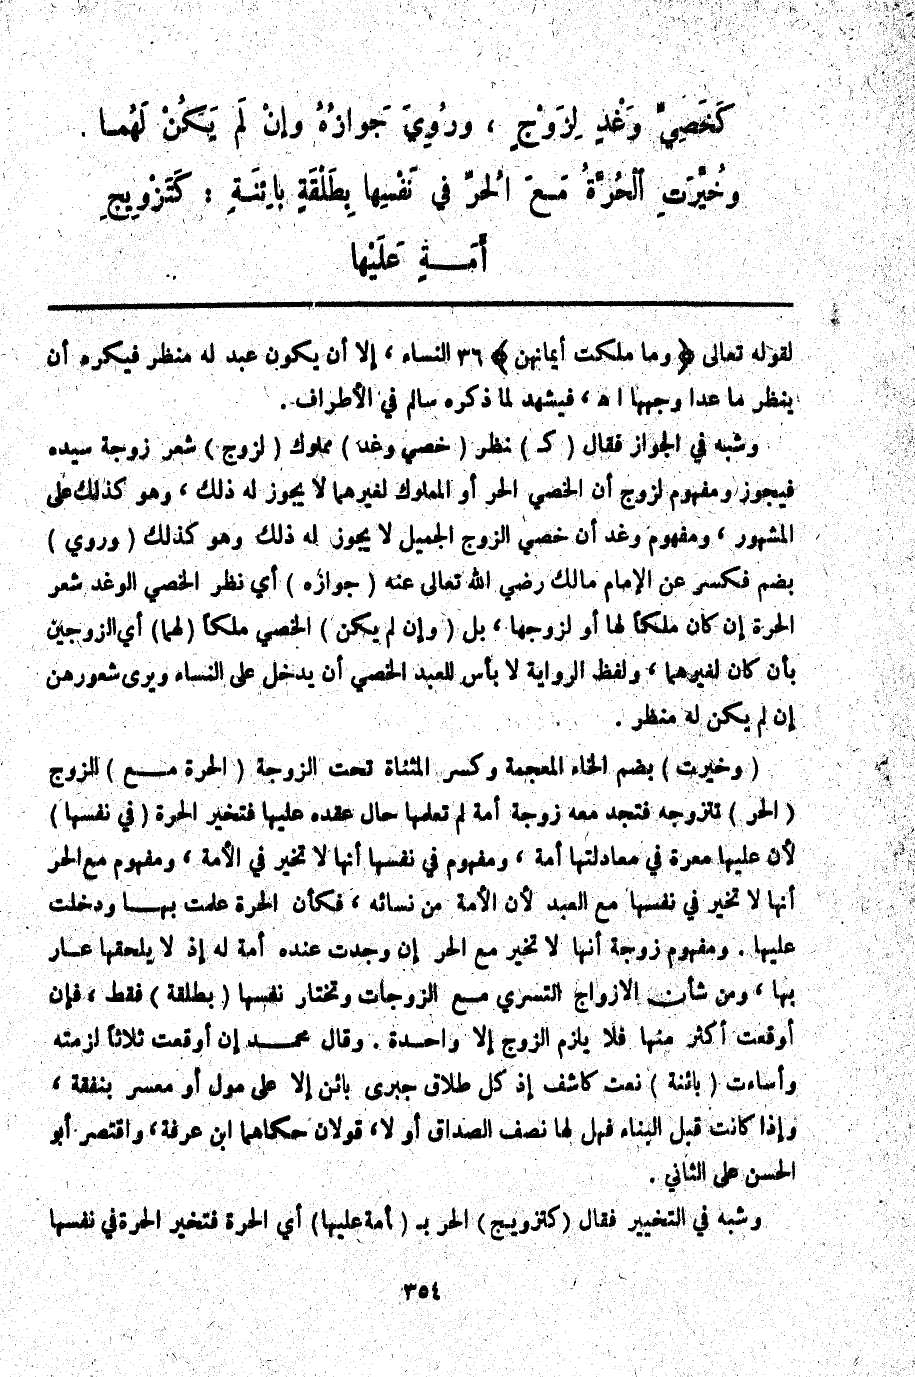 كَخَصِيٍّ وَغْدٍ لِزَوْجٍ ، ورُوِيَ جَوازُهُ وإنْ لَم يَكُنْ لَهُما .
وخُيِّرَتِ الْحُرَّةُ مَعَ الْحُرِّ في نَفْسِها بِطَلْقَةٍ بائِنَةٍ : كَتَزْوِيجِ
أَمَةٍ عَلَيْها
لقوله تعالى ﴿ وما ملكت أيمانهن ﴾ ٣٦ النساء ، إلا أن يكون عبد له منظر فيكره أن
ينظر ما عدا وجهها ا ه ، فيشهد لما ذكره سالم في الأطراف .
وشبه في الجواز فقال ( كـ ) نظر ( خصي وغد ) مملوك ( لزوج ) شعر زوجة سيده
فيجوز ومفهوم لزوج أن الخصي الحر أو المملوك لغيرهما لا يجوز له ذلك ، وهو كذلك على
المشهور ، ومفهوم وغد أن خصي الزوج الجميل لا يجوز له ذلك وهو كذلك ( وروي )
بضم فكسر عن الإمام مالك رضي الله تعالى عنه ( جوازه ) أي نظر الخصي الوغد شعر
الحرة إن كان ملكاً لها أو لزوجها ، بل ( وإن لم يكن ) الخصي ملكاً ( لهما ) أي الزوجين
بأن كان لغيرهما ، ولفظ الرواية لا بأس للعبد الخصي أن يدخل على النساء ويرى شعورهن
إن لم يكن له منظر .
( وخيرت ) بضم الخاء المعجمة وكسر المثناة تحت الزوجة ( الحرة مع ) الزوج
( الحر ) تتزوجه فتجد معه زوجة أمة لم تعلمها حال عقده عليها فتخير الحرة ( في نفسها )
لأن عليها معرة في معادلتها أمة ، ومفهوم في نفسها أنها لا تخير في الأمة ، ومفهوم مع الحر
أنها لا تخير في نفسها مع العبد لأن الأمة من نسائه ، فكأن الحرة علمت بها ودخلت
عليها . ومفهوم زوجة أنها لا تخير مع الحر إن وجدت عنده أمة له إذ لا يلحقها عار
بها ، ومن شأن الازواج التسري مع الزوجات وتختار نفسها ( بطلقة ) فقط ، فإن
أوقعت أكثر منها فلا يلزم الزوج إلا واحدة . وقال محمد إن أوقعت ثلاثاً لزمته
وأساءت ( بائنة ) نعت كاشف إذ كل طلاق جبرى بائن إلا على مول أو معسر بنفقة ،
وإذا كانت قبل البناء فهل لها نصف الصداق أو لا ، قولان حكاهما ابن عرفة ، واقتصر أبو
الحسن على الثاني .
وشبه في التخيير فقال ( كتزويج ) الحر بـ ( أمة عليها ) أي الحرة فتخير الحرة في نفسها
٣٥٤